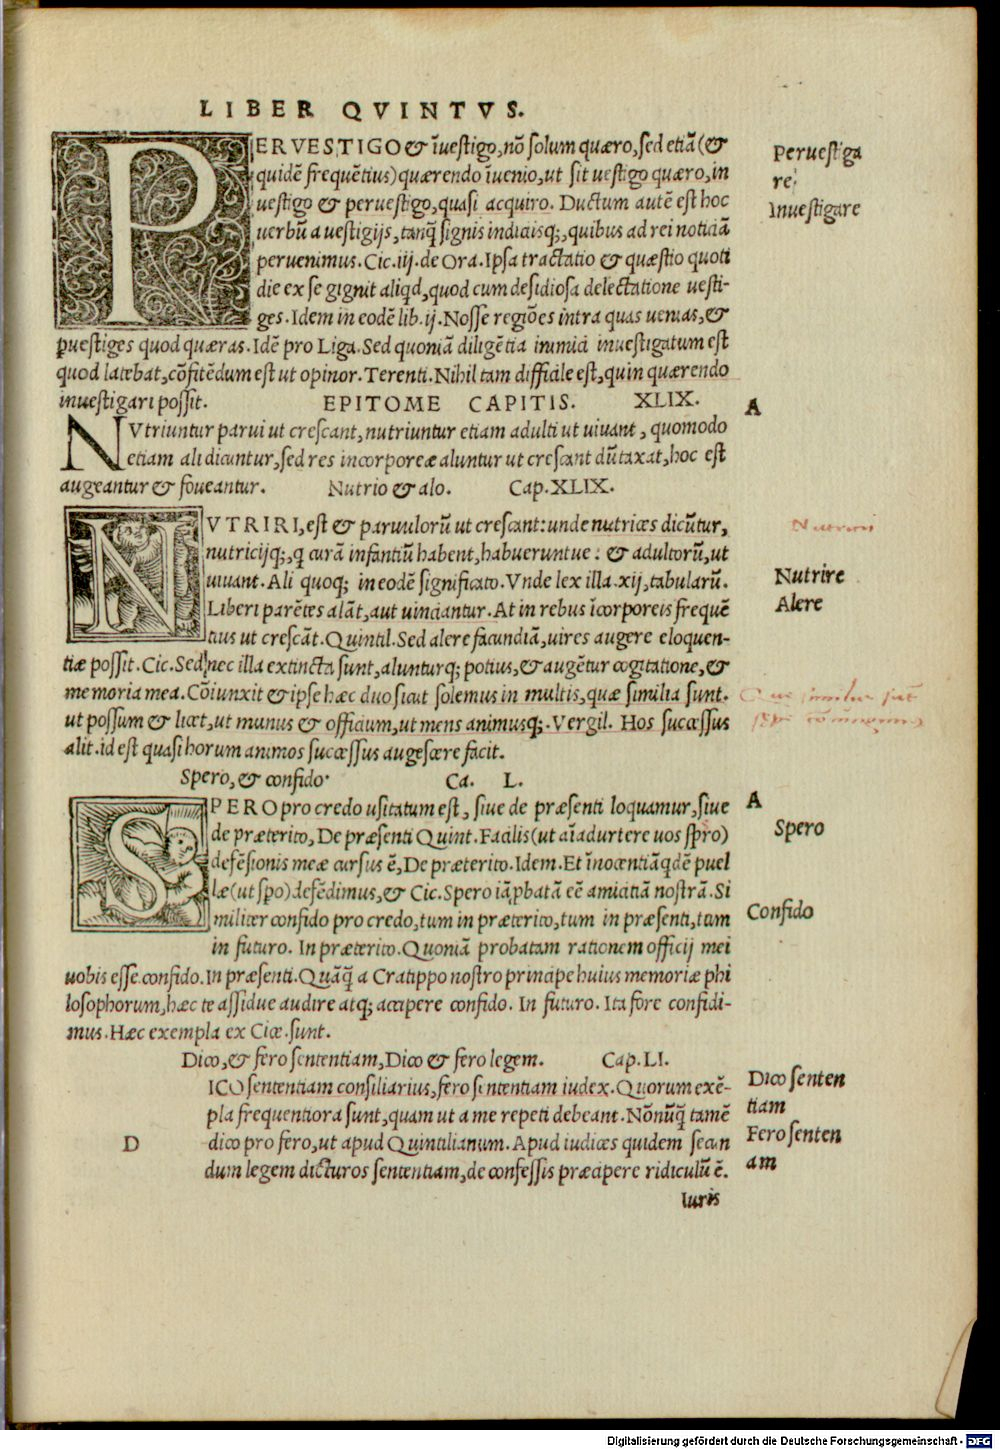 LIBER QVINTVS.
PERVESTIGO & ĩuestigo, nõ solum quæro, sed etiã (&
quidẽ frequẽtius) quærendo ĩuenio, ut sit uestigo quæro, in
uestigo & peruestigo, quasi acquiro. Ductum autẽ est hoc
uerbũ a uestigijs, tanq̃ signis indicijsq;, quibus ad rei noticiã
peruenimus. Cic. iij. de Ora. Ipsa tractatio & quæstio quoti
die ex se gignit aliqd, quod cum desidiosa delectatione uesti-
ges. Idem in eodẽ lib. ij. Nosse regiões intra quas uenias, &
ꝑuestiges quod quæras. Idẽ pro Liga. Sed quoniã diligẽtia inimici inuestigatum est
quod latebat, cõfitẽdum est ut opinor. Terenti. Nihil tam difficile est, quin quærendo
inuestigari possit.
EPITOME CAPITIS. XLIX.
NVtriuntur parui ut crescant, nutriuntur etiam adulti ut uiuant, quomodo
etiam ali dicuntur, sed res incorporeæ aluntur ut crescant dũtaxat, hoc est
augeantur & foueantur. Nutrio & alo. Cap. XLIX.
NVTRIRI, est & paruulorũ ut crescant: unde nutrices dicũtur,
nutricijq;, q curã infantiũ habent, habueruntue: & adultorũ, ut
uiuant. Ali quoq; in eodẽ significato. Vnde lex illa. xij, tabularũ.
Liberi parẽtes alãt, aut uinciantur. At in rebus ĩcorporeis frequẽ
tius ut crescãt. Quintil. Sed alere facundiã, uires augere eloquen-
tiæ possit. Cic. Sed nec illa extincta sunt, alunturq; potius, & augẽtur cogitatione, &
memoria mea. Cõiunxit & ipse hæc duo sicut solemus in multis, quæ similia sunt.
ut possum & licet, ut munus & officium, ut mens animusq;. Vergil. Hos successus
alit. id est quasi horum animos successus augescere facit.
Spero, & confido. Ca. L.
SPERO pro credo usitatum est, siue de præsenti loquamur, siue
de præterito, De præsenti Quint. Facilis (ut aĩaduertere uos spero)
defẽsionis meæ cursus ẽ, De præterito. Idem. Et ĩnocentiã qdẽ puel
læ (ut spo) defẽdimus, & Cic. Spero iã ꝓbatã eẽ amicitiã nostrã. Si
militer confido pro credo, tum in præterito, tum in præsenti, tum
in futuro. In præterito. Quoniã probatam rationem officij mei
uobis esse confido. In præsenti. Quãq̃ a Cratippo nostro principe huius memoriæ phi
losophorum, hæc te assidue audire atq; accipere confido. In futuro. Ita fore confidi-
mus. Hæc exempla ex Cice. sunt.
Dico, & fero sententiam, Dico & fero legem. Cap. LI.
ICO sententiam consiliarius, fero sententiam iudex. Quorum exẽ-
pla frequentiora sunt, quam ut a me repeti debeant. Nõnũq̃ tamẽ
D dico pro fero, ut apud Quintilianum. Apud iudices quidem secun
dum legem dicturos sententiam, de confessis præcipere ridiculũ ẽ.
Iuris
Peruestiga
re.
Inuestigare
A
Nutriri
Nutrire
Alere
Que similia sũt
A
Spero
Confido
Dico senten
tiam
Fero senten
am
Digitalisierung gefördert durch die Deutsche Forschungsgemeinschaft - DFG